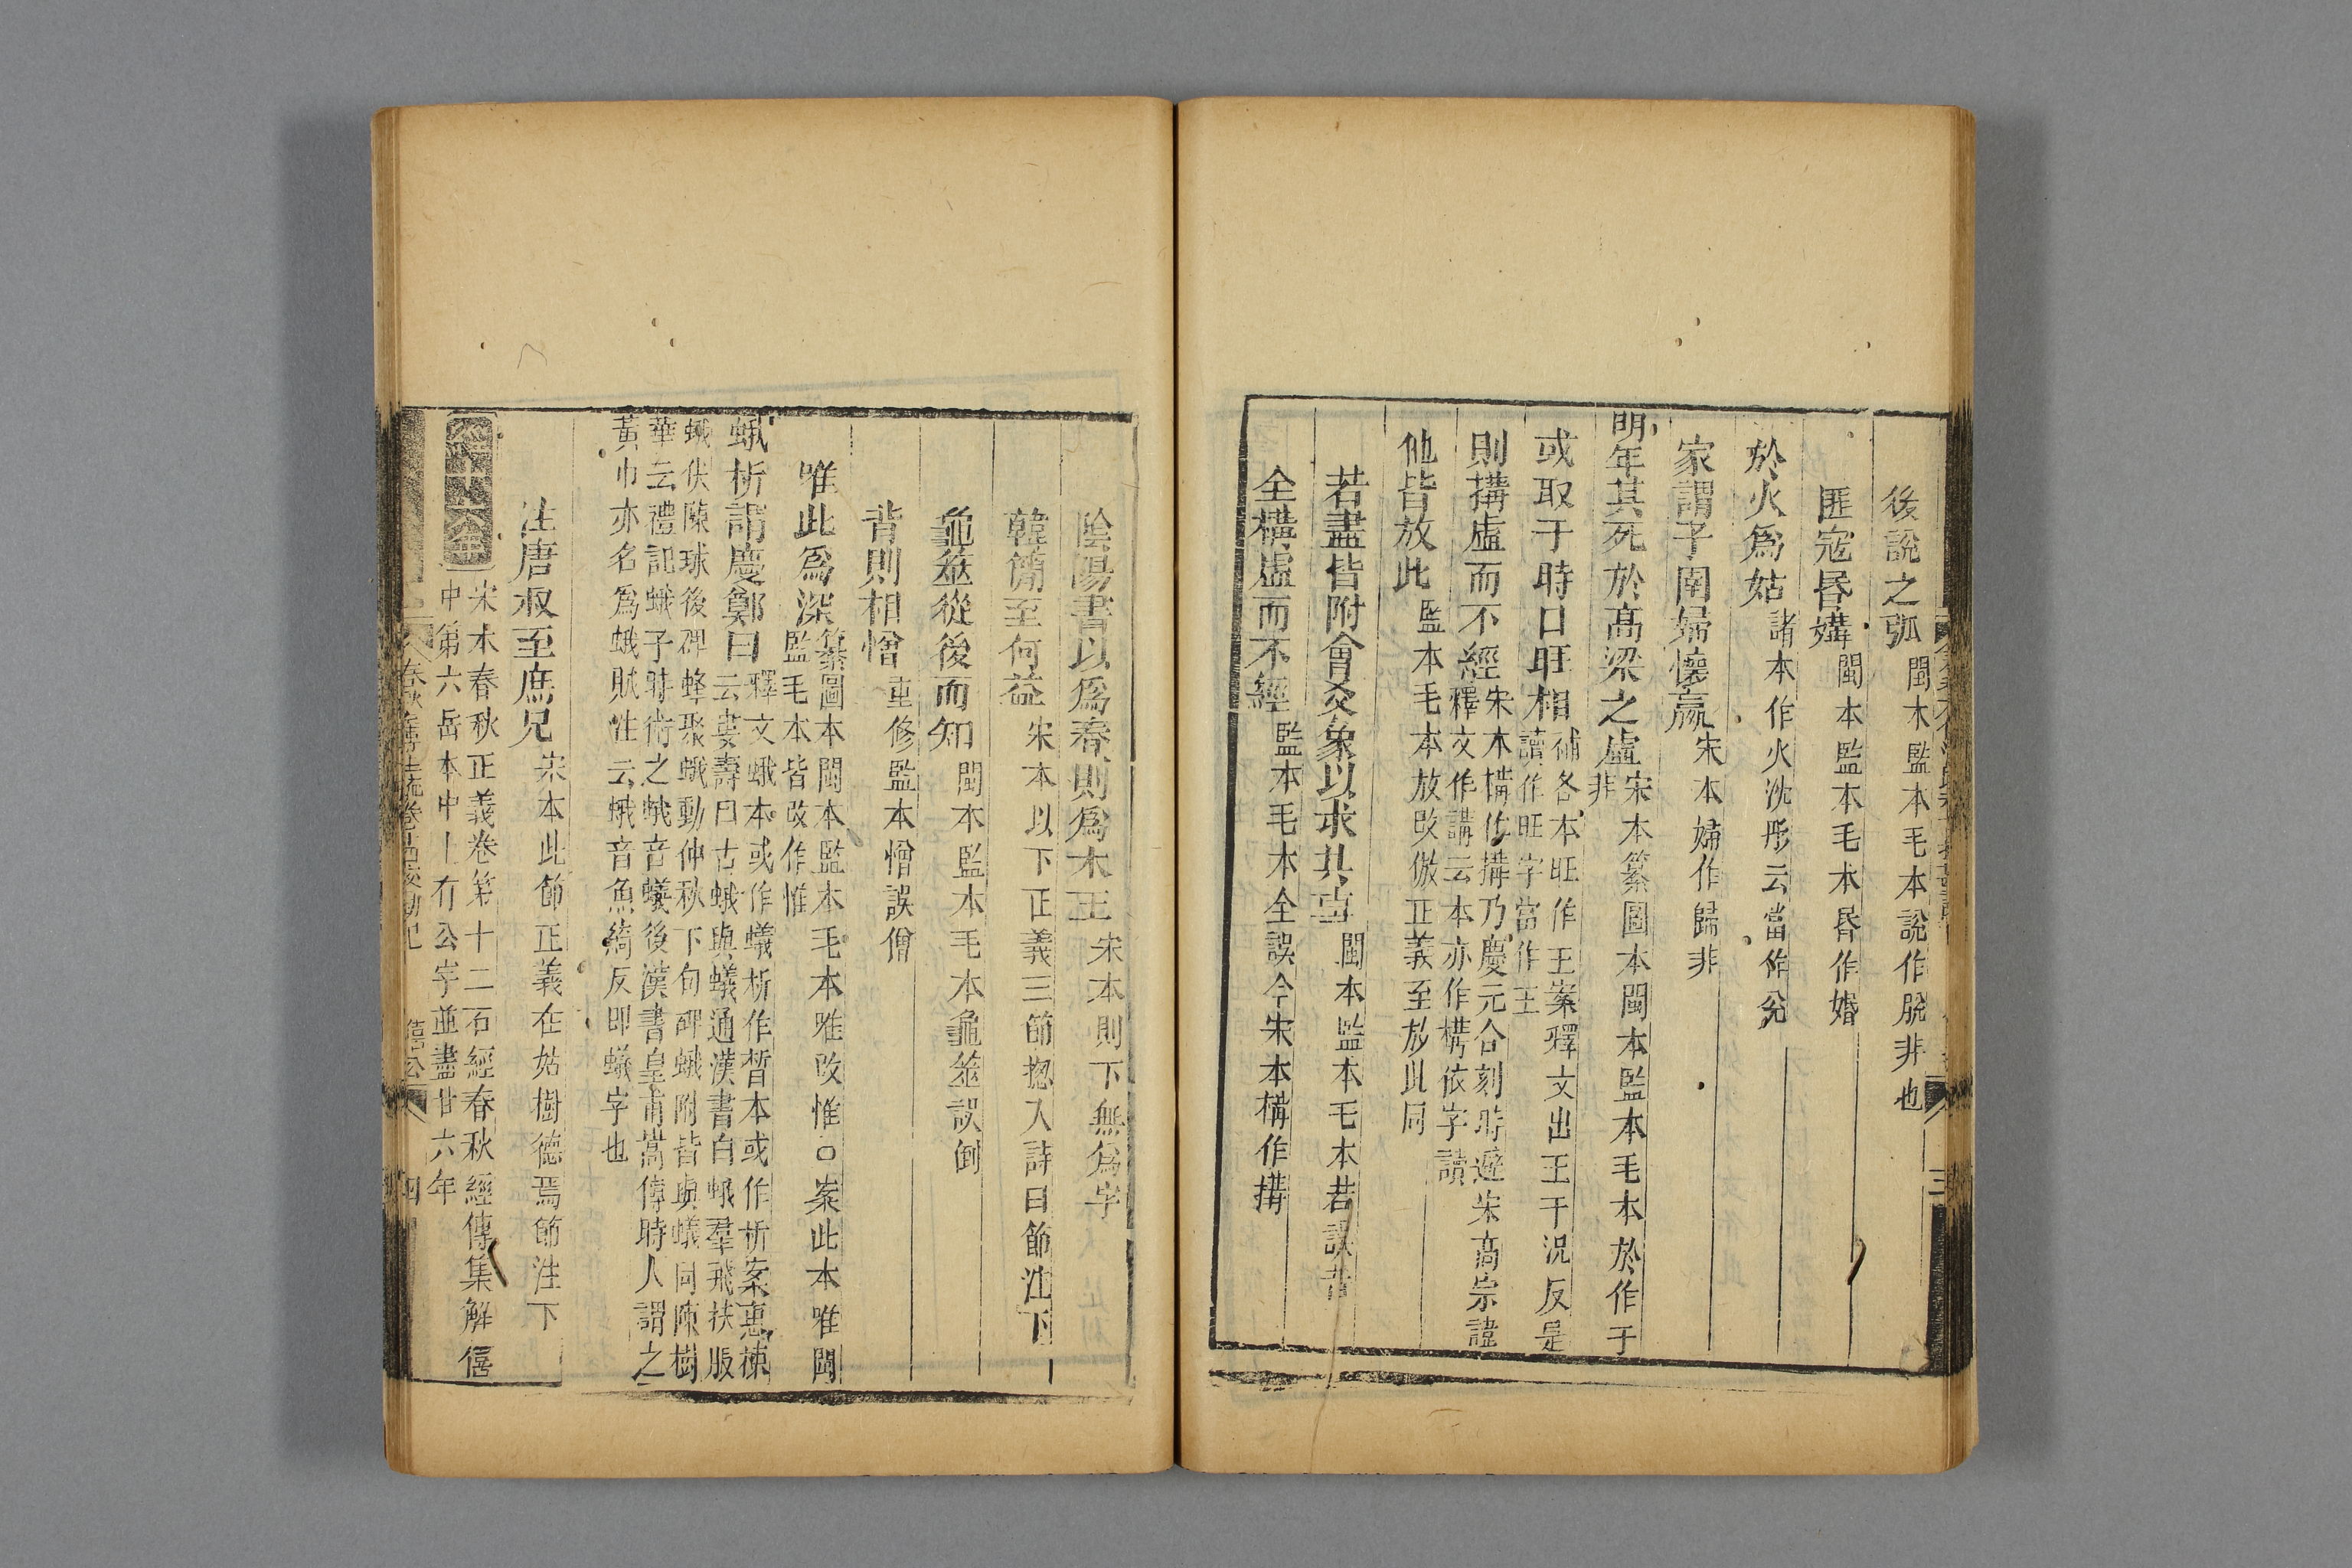 後說之弧 閩本監本毛本說作脫非也
匪寇昏媾 閩本監本毛本昏作婚
於火爲姑 諸本作火沈彤云當作兊
家謂子圉婦懷嬴 宋本婦作歸非
明年其死於高梁之虛 宋本纂圖本閩本監本毛本於作于非
或取于時日旺相 補各本旺作王案釋文出王于况反是讀作旺字當作王
則搆虛而不經 宋本構作搆乃慶元合刻時避宋高宗諱釋文作講云本亦作構依字讀
他皆放此 監本毛本放改倣正義至放此同
若盡皆附會爻象以求其事 閩本監本毛本若誤昔
全構虛而不經 監本毛本全誤今宋本構作搆
陰陽書以爲春則爲木王 宋本則下無爲字
韓簡至何益 宋本以下正義三節揔入詩曰節注下
龜筮從後而知 閩本監本毛本龜筮誤倒
背則相憎 重修監本憎誤僧
唯此爲深 纂圖本閩本監本毛本唯改惟○案此本唯閩監毛本皆改作惟
蛾析謂慶鄭曰 釋文蛾本或作蟻析作晳本或作析案惠棟云婁壽曰古蛾與蟻通漢書白蛾羣飛扶服
蛾伏陳球後碑蜂聚蛾動仲秋下旬碑蛾附皆與蟻同陳樹
華云禮記蛾子時術之蛾音蟻後漢書皇甫嵩傳時人謂之
黃巾亦名爲蛾賊注云蛾音魚綺反即蟻字也
注唐叔至庶兄 宋本此節正義在姑樹德焉節注下
宋本春秋正義卷第十二石經春秋經傳集解僖
中第六岳本中上有公字並盡廿六年
春秋左傳注疏卷十四校勘記 僖公 四